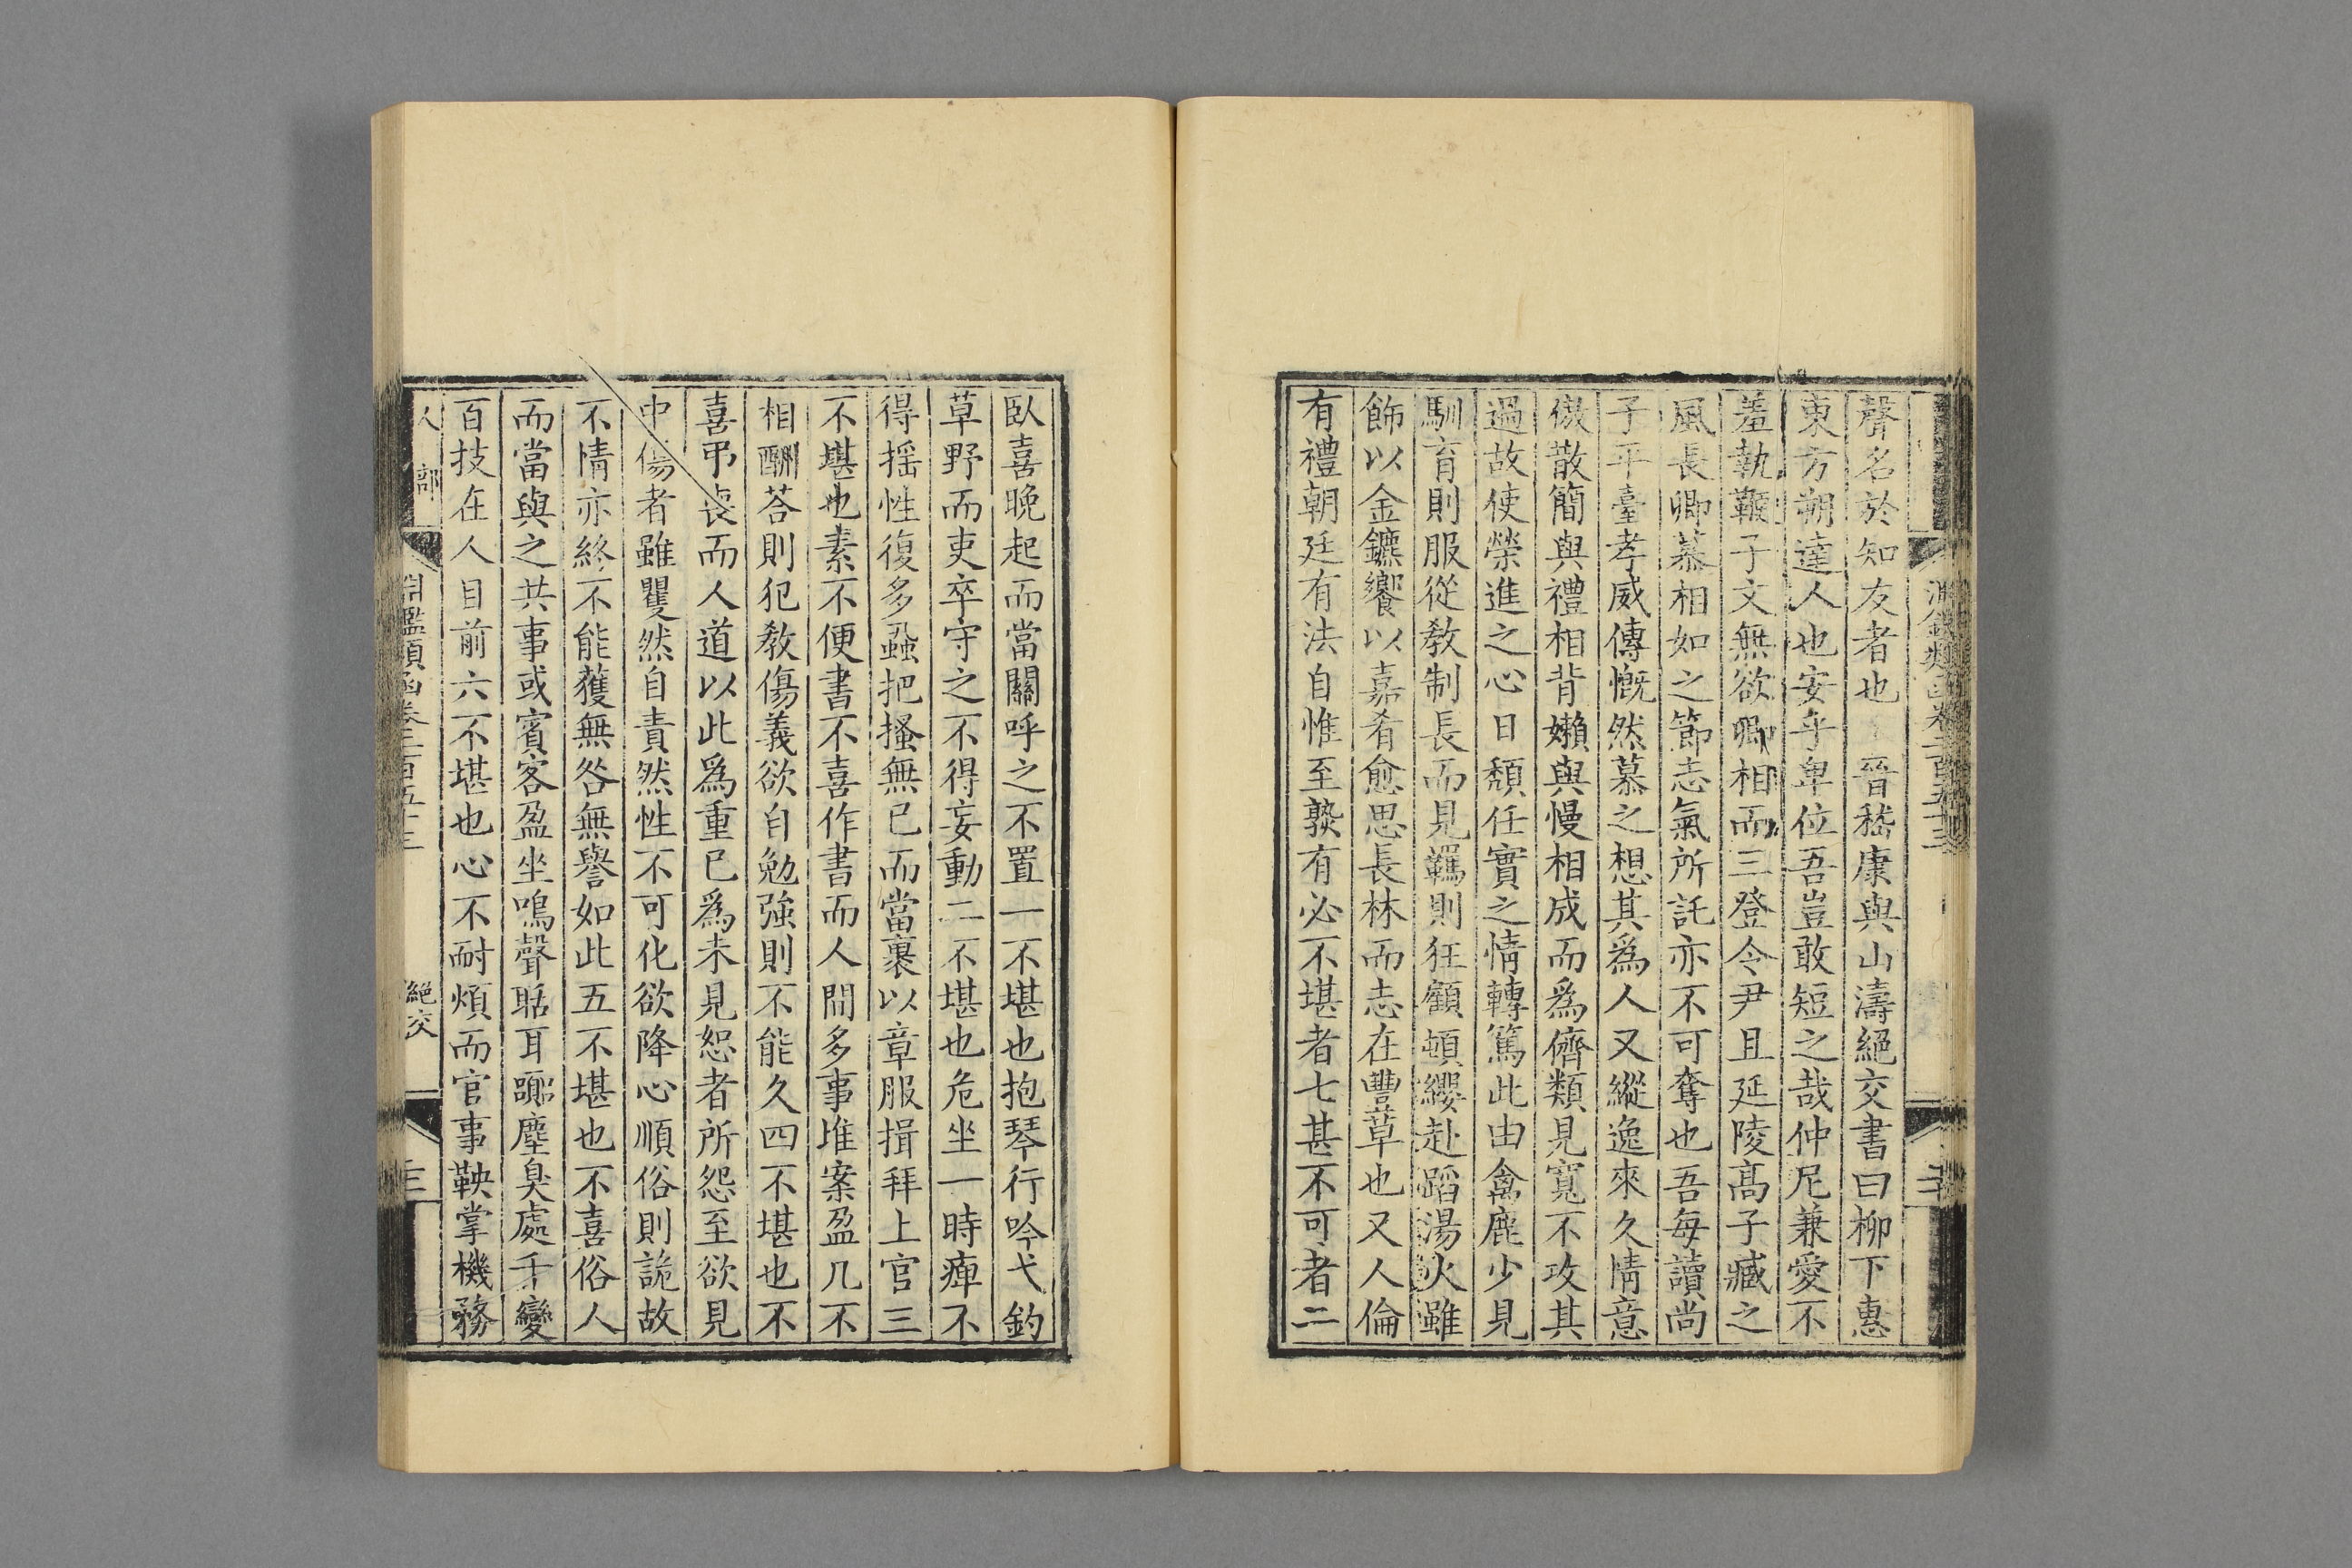 聲名於知友者也　晉嵇康與山濤絕交書曰柳下惠
東方朔達人也安乎卑位吾豈敢短之哉仲尼兼愛不
羞執鞭子文無欲卿相而三登令尹且延陵高子臧之
風長卿慕相如之節志氣所託亦不可奪也吾每讀尚
子平臺孝威傳慨然慕之想其爲人又縱逸來久情意
傲散簡與禮相背嬾與慢相成而爲儕類見寬不攻其
過故使榮進之心日頹任實之情轉篤此由禽鹿少見
馴育則服從敎制長而見羈則狂顧頓纓赴蹈湯火雖
飾以金鑣饗以嘉肴愈思長林而志在豐草也又人倫
有禮朝廷有法自惟至熟有必不堪者七甚不可者二
臥喜晚起而當關呼之不置一不堪也抱琴行吟弋釣
草野而吏卒守之不得妄動二不堪也危坐一時痺不
得搖性復多蝨把搔無已而當裹以章服揖拜上官三
不堪也素不便書不喜作書而人間多事堆案盈几不
相酬荅則犯敎傷義欲自勉強則不能久四不堪也不
喜弔喪而人道以此爲重已爲未見恕者所怨至欲見
中傷者雖瞿然自責然性不可化欲降心順俗則詭故
不情亦終不能獲無咎無譽如此五不堪也不喜俗人
而當與之共事或賓客盈坐鳴聲聒耳囂塵臭處千變
百技在人目前六不堪也心不耐煩而官事鞅掌機務
人　部
淵鑑類函卷三百五十三
絕交